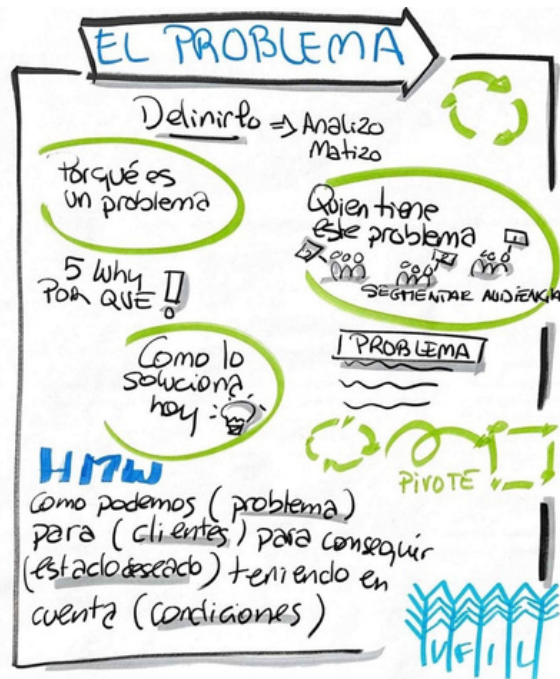 EL PROBLEMA
Definirlo => Analizo
Matizo
Porqué es
un problema
Quien tiene
este problema
SEGMENTAR AUDIENCIA
5 Why
POR QUE !
Como lo
soluciona
hoy
PROBLEMA
PIVOTE
HMW
Como podemos (problema)
para (clientes) para conseguir
(estado deseado) teniendo en
cuenta (condiciones)